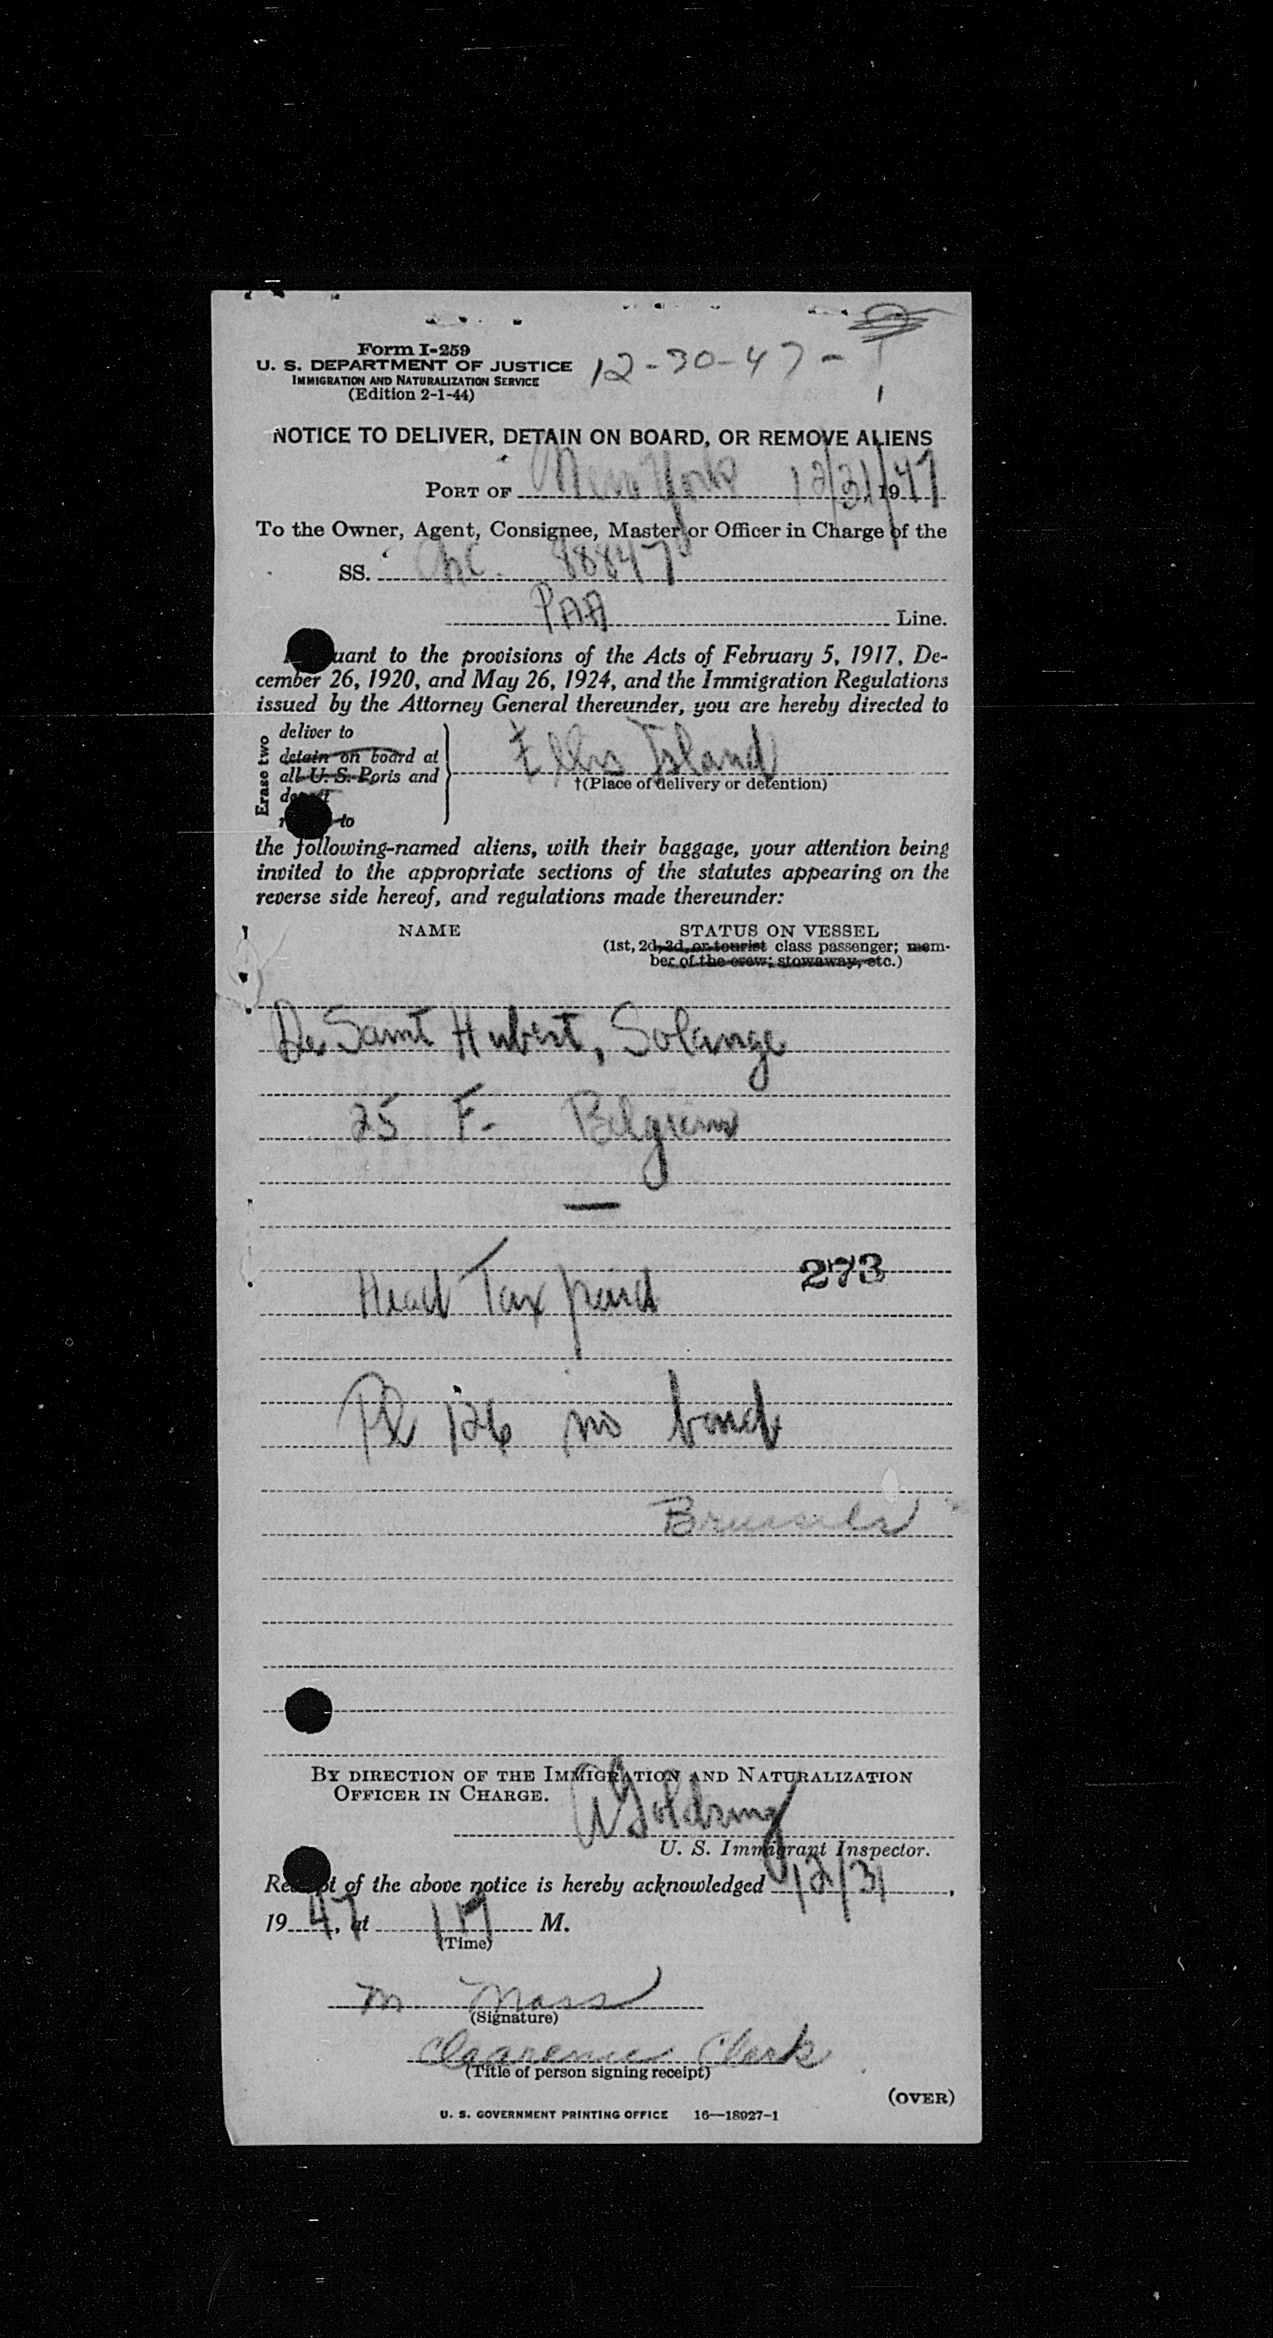 Form I-259
U. S. DEPARTMENT OF JUSTICE
IMMIGRATION AND NATURALIZATION SERVICE
(Edition 2-1-44)
12-30-47-
NOTICE TO DELIVER, DETAIN ON BOARD, OR REMOVE ALIENS
PORT OF New York 12/31/1947
To the Owner, Agent, Consignee, Master or Officer in Charge of the
SS. NC. 88847
PAA Line.
uant to the provisions of the Acts of February 5, 1917, De-
cember 26, 1920, and May 26, 1924, and the Immigration Regulations
issued by the Attorney General thereunder, you are hereby directed to
Erase two
deliver to
detain on board at
all U. S. Ports and
to
Ellis Island
†(Place of delivery or detention)
the following-named aliens, with their baggage, your attention being
invited to the appropriate sections of the statutes appearing on the
reverse side hereof, and regulations made thereunder:
NAME STATUS ON VESSEL
(1st, 2d, 3d, or tourist class passenger; mem-
ber of the crew; stowaway, etc.)
De Saint Hubert, Solange
25 F. Belgium
Head Tax paid 273
126 no bond
Brussels
BY DIRECTION OF THE IMMIGRATION AND NATURALIZATION
OFFICER IN CHARGE.
Goldring
U. S. Immigrant Inspector.
Receipt of the above notice is hereby acknowledged 12/31,
1947, at M.
(Time)
M Mass
(Signature)
Clearance Clerk
(Title of person signing receipt)
(OVER)
U. S. GOVERNMENT PRINTING OFFICE 16—18927-1